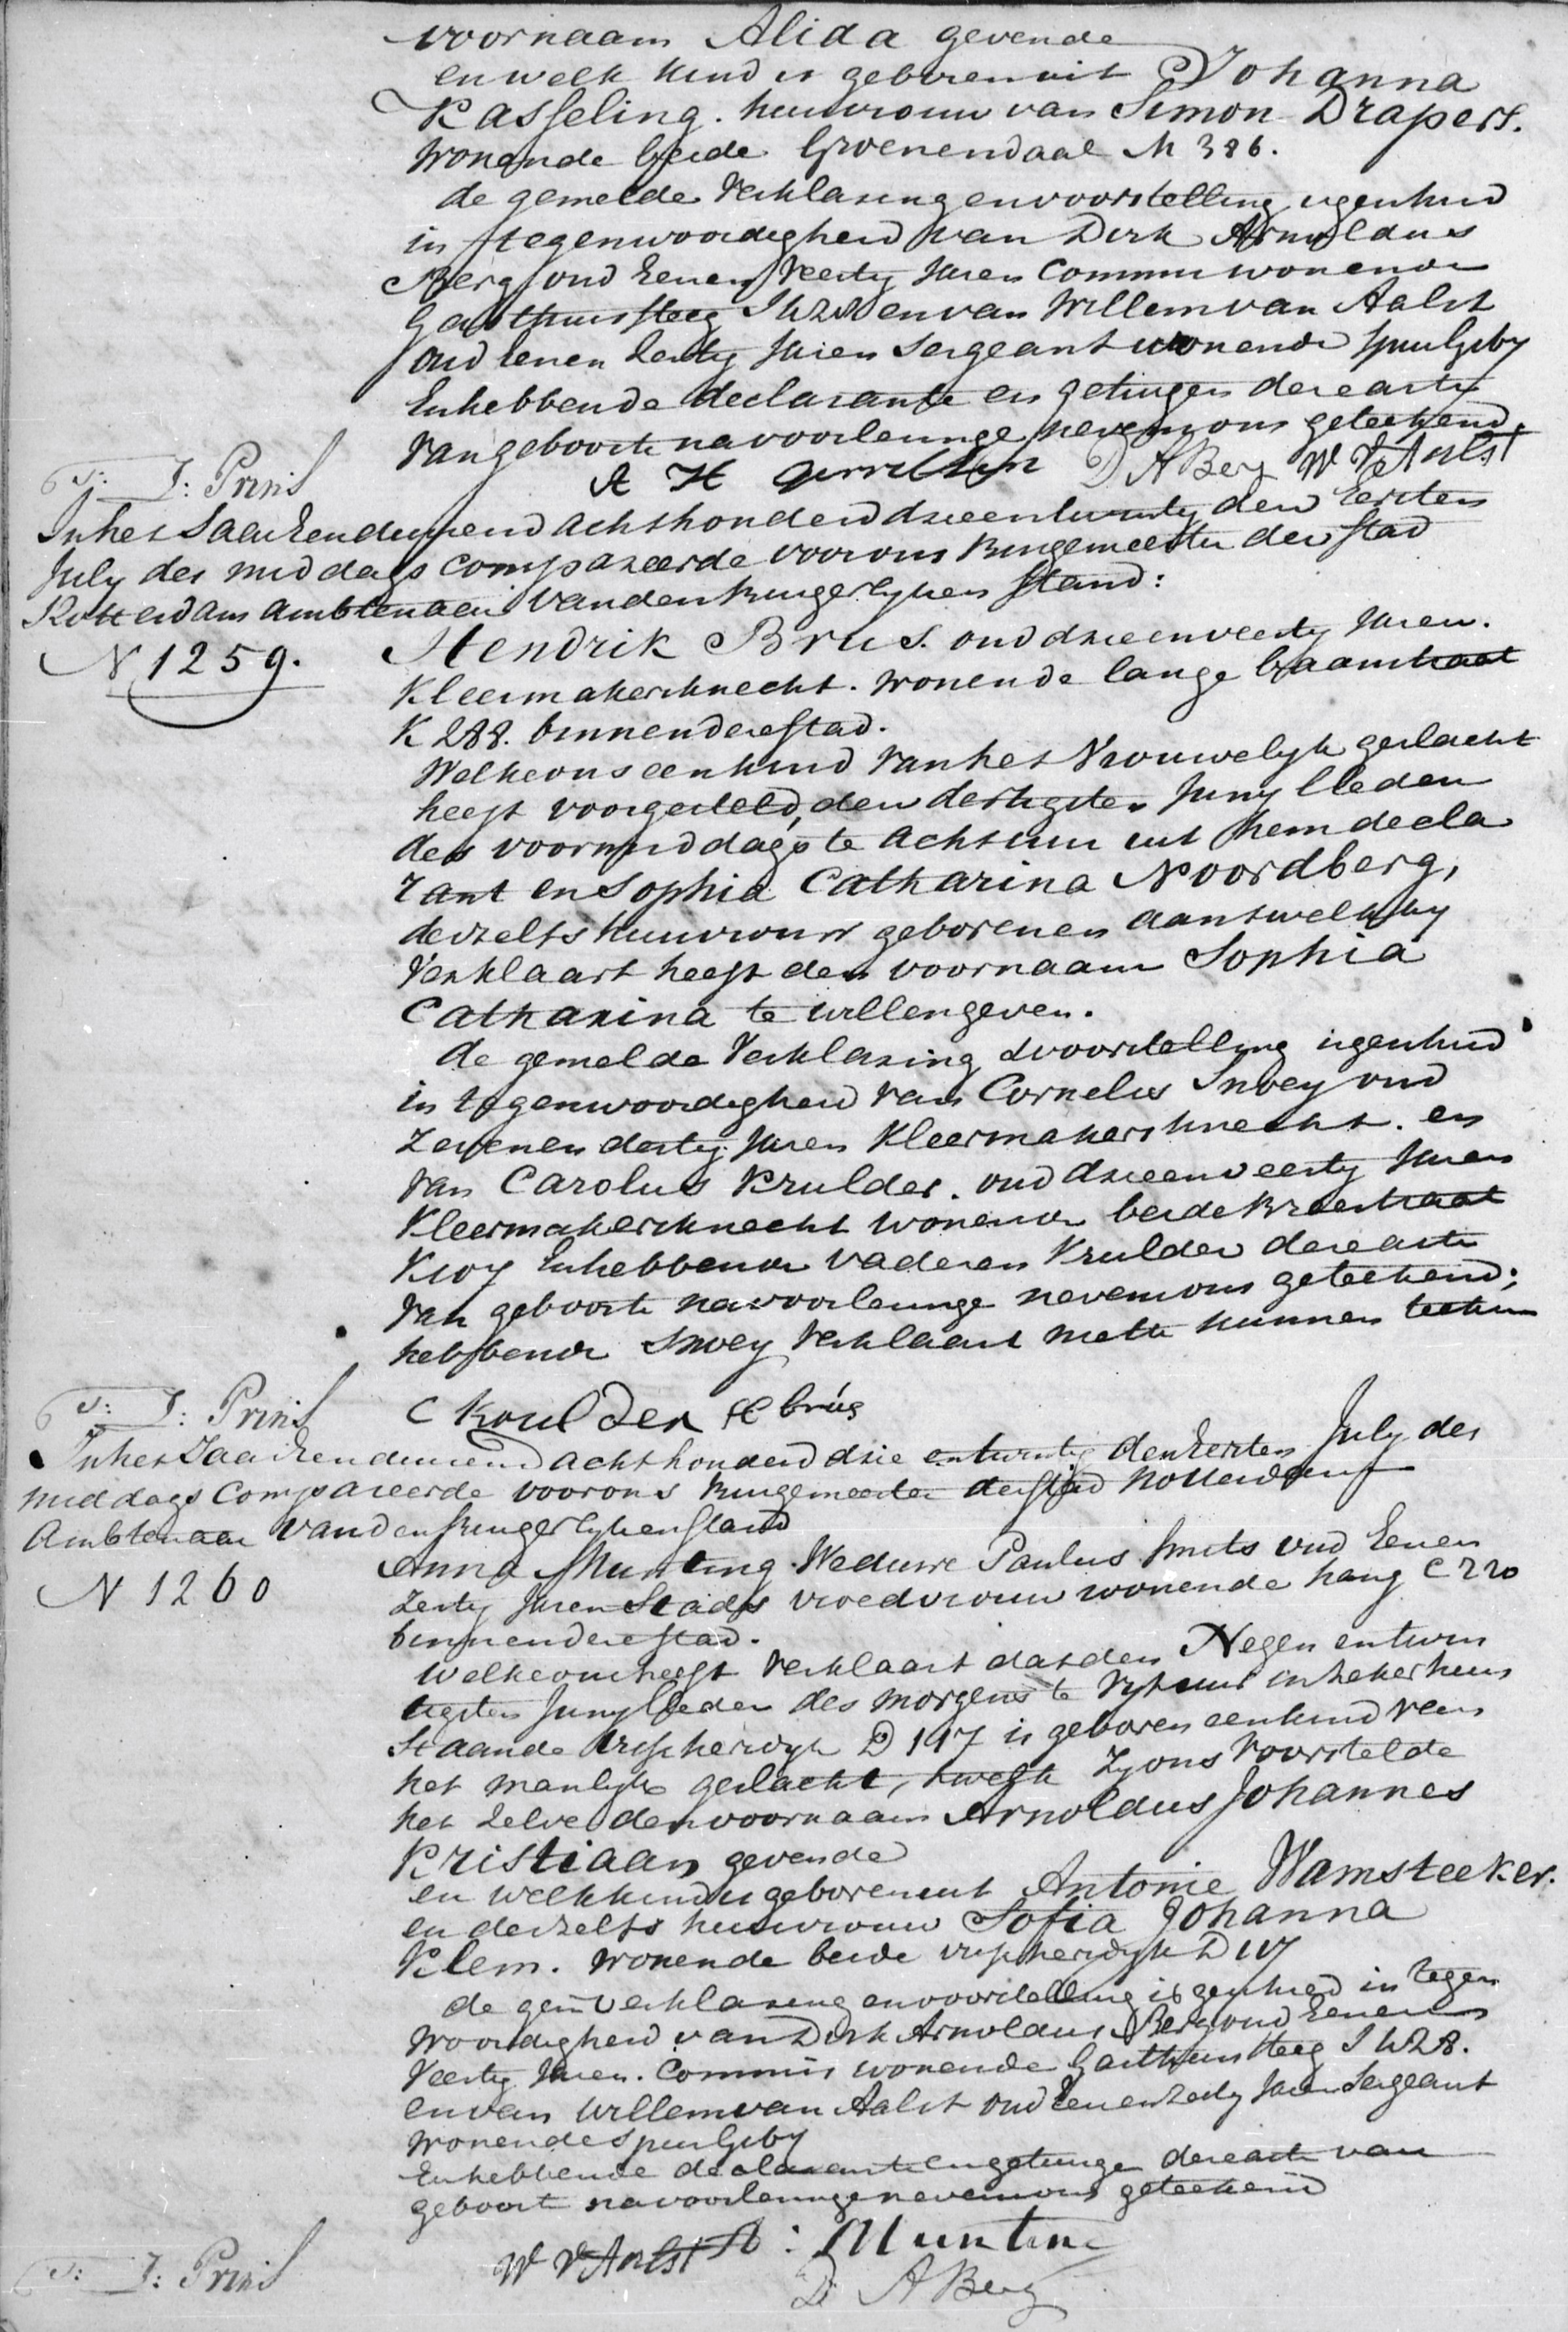 voornaam Alida gevende
en welk kind is geboren uit Johanna
Kasseling. huisvrouw van Simon Drapers.
Wonende beide Groenendaal M 386.
de gemelde Verklaring en voorstelling is geschied
in tegenwoordigheid van Dirk Arnoldus
Berg oud Eenen Veertig Jaren Commis wonende
Gasthuissteeg I 428 en van Willem van Aalst
oud eenen Zestig Jaren Sergeant wonende
En hebbende declarante en getuigen dese acte
Van geboorte na voorlezinge nevens ons geteekend.
A H Gerritsen D A Berg W V Aalst
J: Prins
In het Jaar Eenduizend achthonderd drieentwintig den Eersten
July des middags compareerde voor ons Burgemeester der Stad
Rotterdam Ambtenaar van den Burgerlyken Stand:
N 1259.
Hendrik Brus. oud drieenveertig Jaren.
Kleermakersknecht. wonende lange baanstraat
K 288. binnen dese Stad.
Welke ons een kind van het Vrouwelyk geslacht
heeft voorgesteld, den dertigsten Juny lleden
des voormiddags te acht uur uit hem decla
rant en Sophia Catharina Noordberg,
deszelfs huisvrouw geboren en aan t welk hy
Verklaart heeft den voornaam Sophia
Catharina te willen geven.
de gemelde Verklaring & voorstelling is geschied
in tegenwoordigheid van Cornelis Snoey oud
Zevenendertig Jaren Kleermakersknecht. en
van Carolus Krulder. oud drieenveertig Jaren
Kleermakersknecht wonende beide Breestraat
En hebbende vader en Krulder dese acte
Van geboorte na voorlezinge nevens ons geteekend;
hebbende Snoey Verklaart niet te kunnen teeken
C Krulder H Brús
J: Prins
In het Jaar Eenduizend achthonderd drie entwintig den Eersten July des
middags Compareerde voor ons Burgemeester der Stad Rotterdam
Ambtenaar van den Burgerlyken Stand
N 1260
Anna Munting Weduwe Paulus Smits oud Eenen
Zestig Jaren Stads vroedvrouw wonende hang C 220
binnen dese Stad.
Welke ons heeft Verklaart dat den Negen entwin
tigsten Juny lleden des morgens te Vyf uur in zeker huis
Staande Visschersdyk D 117 is geboren een kind van
het manlyk geslacht, t welk Zy ons Voorstelde
het Zelve den voornaam Arnoldus Johannes
Kristiaan gevende
en welk kind is geboren uit Antonie Wamsteeker.
en deszelfs huisvrouw Sofia Johanna
Klem. wonende beide Visschersdyk D 117
de gem Verklaring en voorstelling is geschied in tegen
woordigheid van Dirk Arnoldus Berg oud Eenen
Veertig Jaren. Commis wonende Gasthuissteeg I 428.
en van Willem van Aalst oud Eenenzestig Jaren Sergeant
wonende
En hebbende declarante en getuigen dese acte van
geboorte na voorlezinge nevens ons geteekend
W V Aalst A: Munting
D A Berg
J: Prins